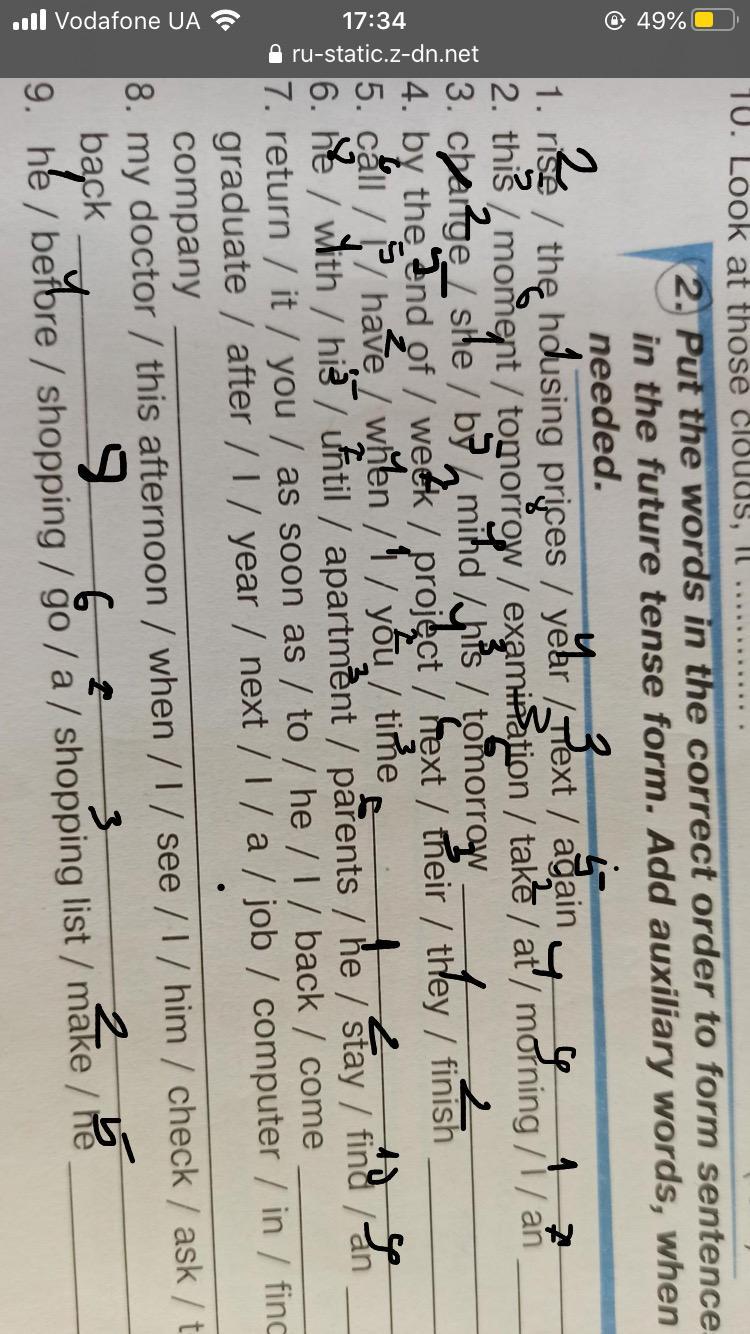 Vodafone UA 17:34 49%
ru-static.z-dn.net
10. Look at those clouds, it ............ .
2. Put the words in the correct order to form sentence
in the future tense form. Add auxiliary words, when
needed.
1. rise / the housing prices / year / next / again
2. this / moment / tomorrow / examination / take / at / morning / I / an
3. change / she / by / mind / his / tomorrow
4. by the end of / week / project / next / their / they / finish
5. call / I / have / when / I / you / time
6. he / with / his / until / apartment / parents / he / stay / find / an
7. return / it / you / as soon as / to / he / I / back / come
graduate / after / I / year / next / I / a / job / computer / in / find
company
8. my doctor / this afternoon / when / I / see / I / him / check / ask / t
back
9. he / before / shopping / go / a / shopping list / make / he